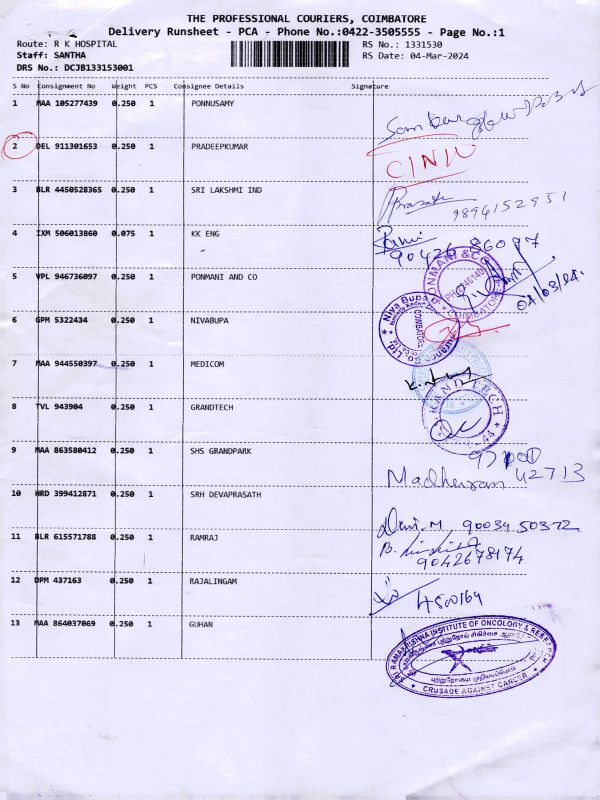 THE PROFESSIONAL COURIERS, COIMBATORE
Delivery Runsheet - PCA - Phone No.:0422-3505555 - Page No.:1
Route: R K HOSPITAL RS No.: 1331530
Staff: SANTHA RS Date: 04-Mar-2024
DRS No.: DCJB133153001
S No Consignment No Weight PCS Consignee Details Signature
1 MAA 105277439 0.250 1 PONNUSAMY
2 DEL 911301653 0.250 1 PRADEEPKUMAR
3 BLR 4450528365 0.250 1 SRI LAKSHMI IND 9894152951
4 IXM 506013860 0.075 1 KK ENG 90426 86097
5 VPL 946736097 0.250 1 PONMANI AND CO 04/03/24.
6 GPM 5322434 0.250 1 NIVABUPA
7 MAA 944550397 0.250 1 MEDICOM
8 TVL 943904 0.250 1 GRANDTECH
9 MAA 863580412 0.250 1 SHS GRANDPARK 42713
10 HRD 399412871 0.250 1 SRH DEVAPRASATH Devi.M 90034 50372
11 BLR 615571788 0.250 1 RAMRAJ 9042678174
12 DPM 437163 0.250 1 RAJALINGAM 4500164
13 MAA 864037069 0.250 1 GUHAN
SRI RAMAKRISHNA INSTITUTE OF ONCOLOGY & RESEARCH
CRUSADE AGAINST CANCER